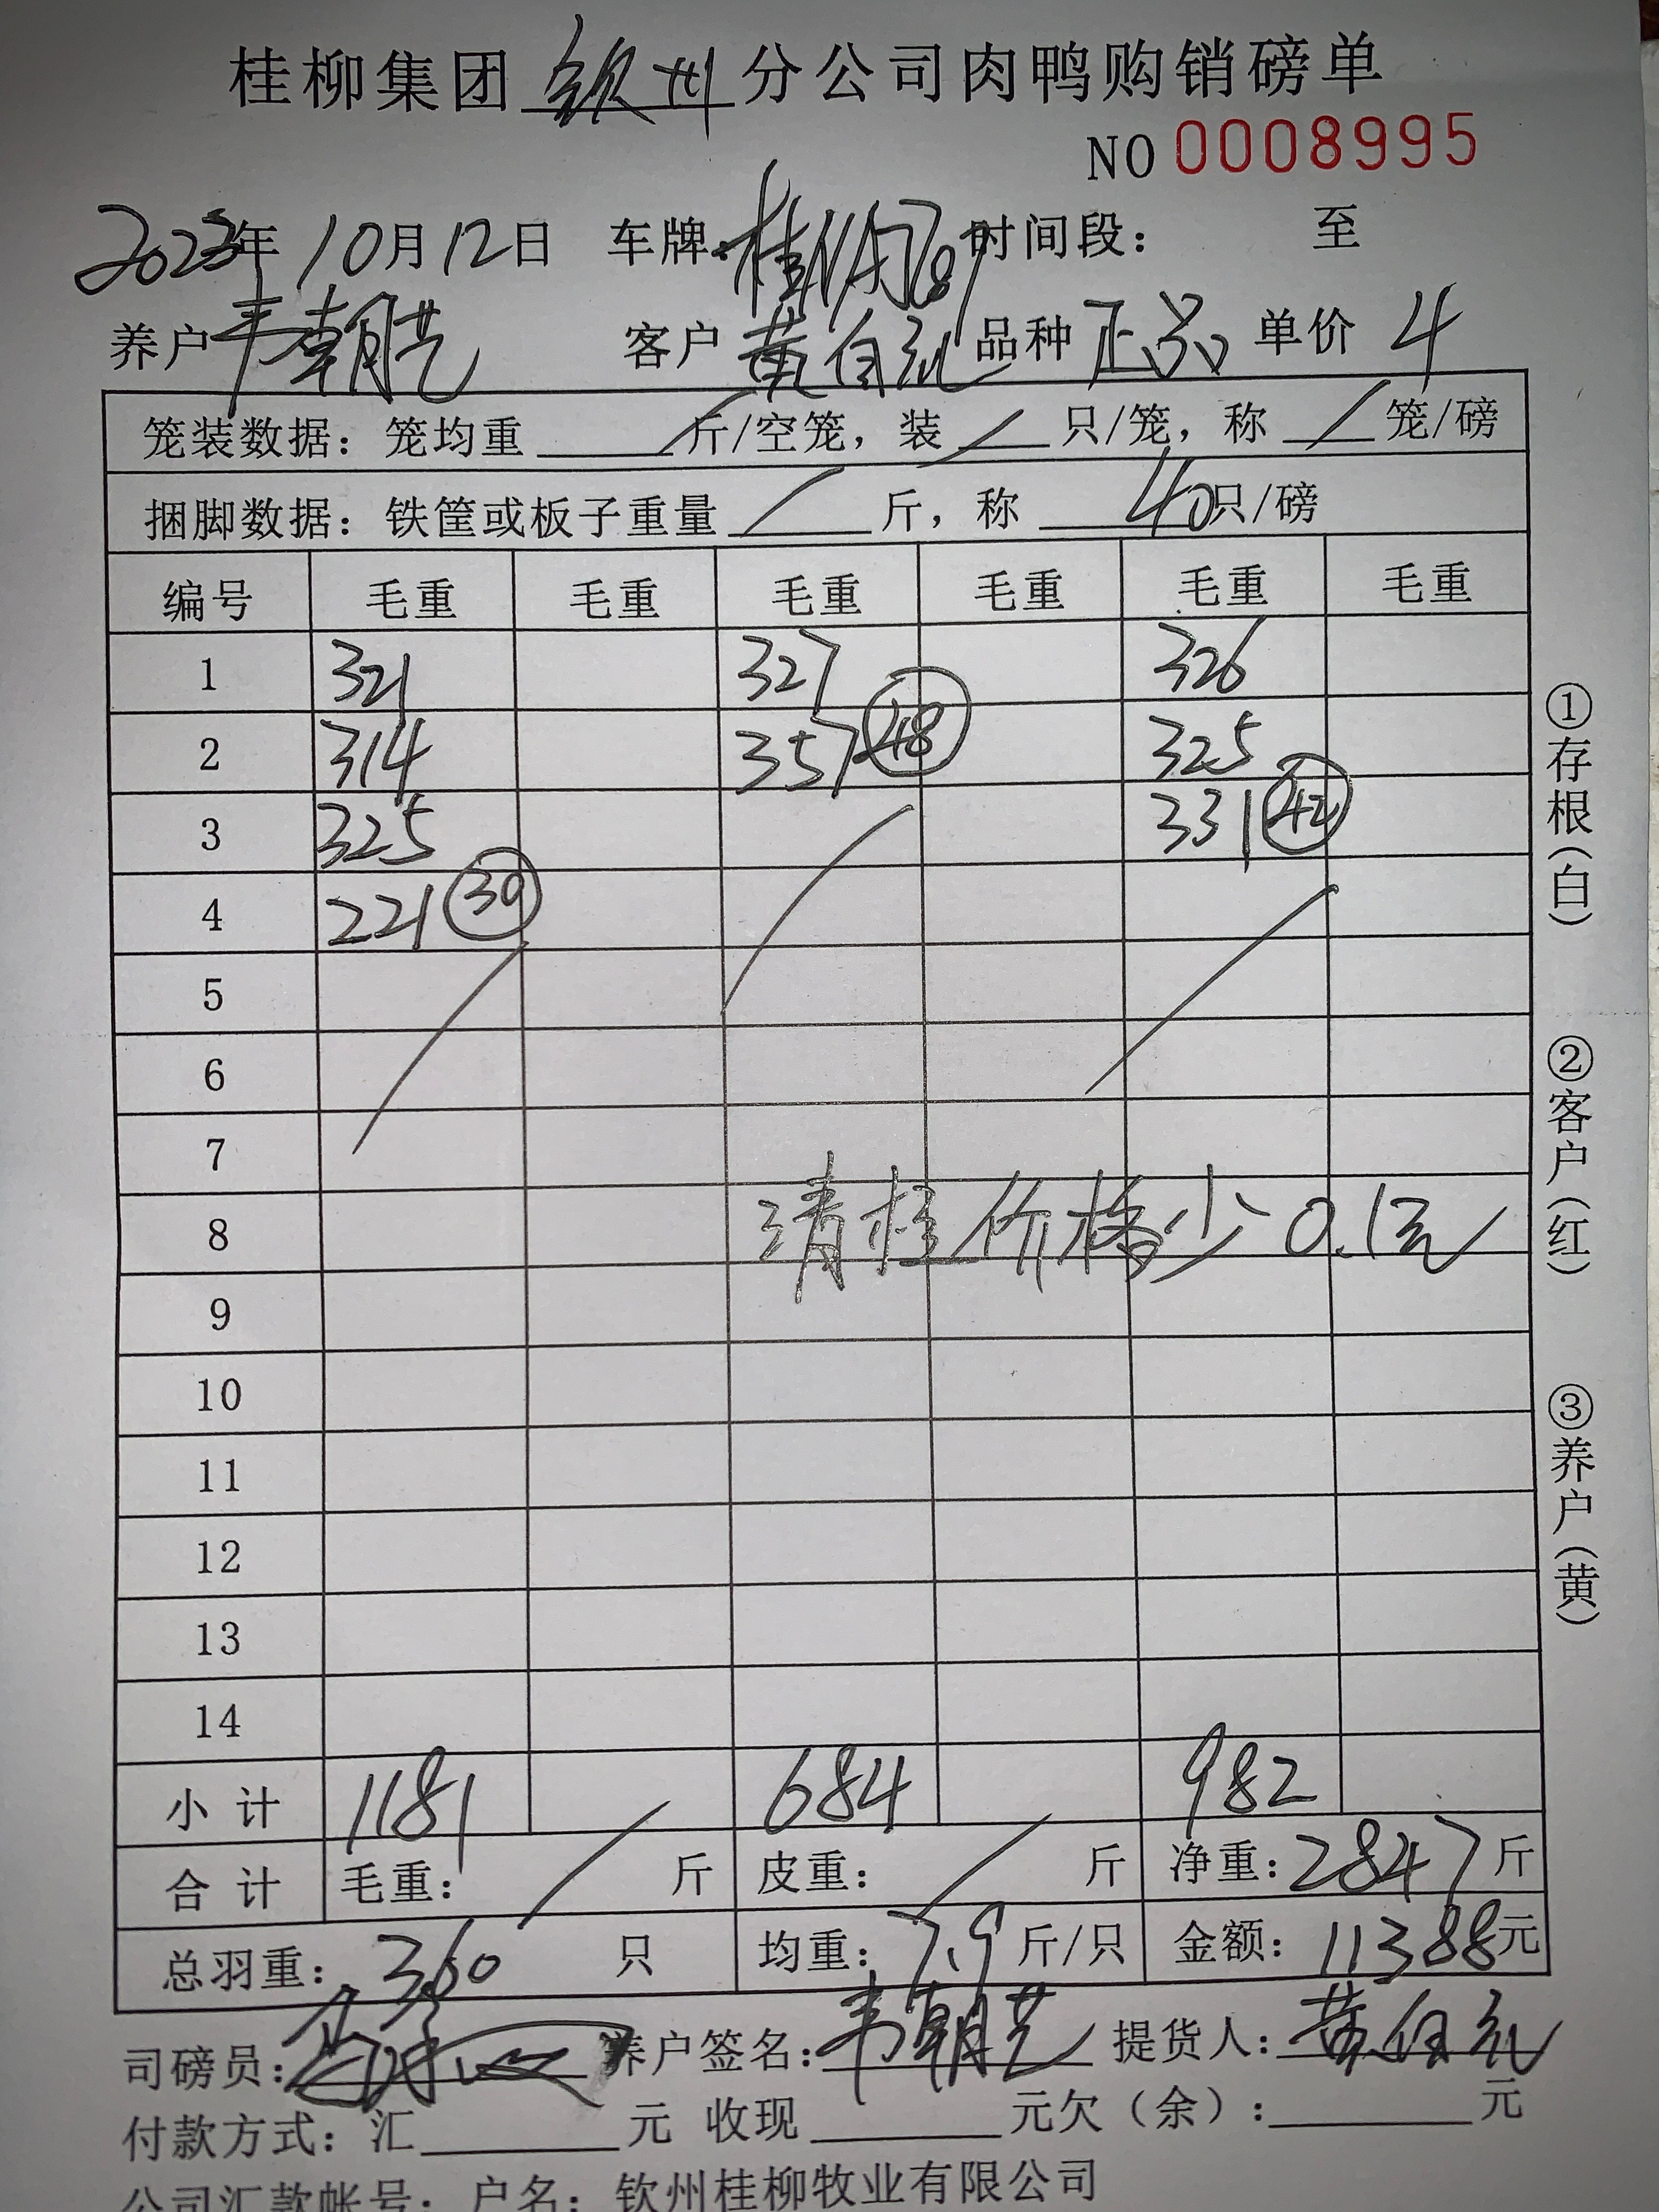 桂柳集团 钦州 分公司肉鸭购销磅单
NO 0008995
2023年 10月12日 车牌: 时间段: 至
养户 韦朝芑 客户 黄自礼 品种 正品 单价 4
笼装数据: 笼均重 / 斤/空笼, 装 / 只/笼, 称 / 笼/磅
捆脚数据: 铁筐或板子重量 / 斤, 称 40只/磅
编号 毛重 毛重 毛重 毛重 毛重 毛重
1 321 327 326
2 314 357 48 325
3 325 331 42
4 221 30
5
6
7
8 清桂价格少0.1元
9
10
11
12
13
14
小计 1181 684 982
合计 毛重: / 斤 皮重: / 斤 净重: 2847斤
总羽重: 360 只 均重: 7.9 斤/只 金额: 11388元
司磅员: 养户签名: 韦朝芑 提货人:
付款方式: 汇 元 收现 元欠（余）: 元
公司汇款帐号: 户名: 钦州桂柳牧业有限公司
①存根（白）
②客户（红）
③养户（黄）